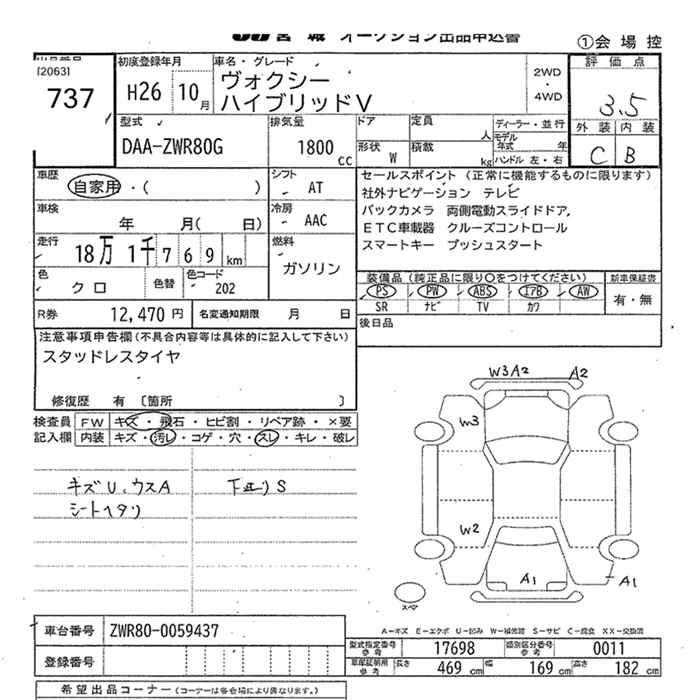 宮城 オークション出品申込書
①会場控
[2063]
737
初度登録年月
H26 10月
車名・グレード
ヴォクシー
ハイブリッドV
2WD
・
4WD
評価点
3.5
外装 内装
C B
型式
DAA-ZWR80G
排気量
1800 cc
ドア
形状 W
定員 人
積載 kg
ディーラー・並行
モデル年式 年
ハンドル 左・右
車歴
自家用・( )
シフト
AT
車検
年 月( 日)
冷房
AAC
走行
18万 1千 7 6 9 km
燃料
ガソリン
色
クロ
色替
色コード
202
R券 12,470 円 名変通知期限 月 日
セールスポイント (正常に機能するものに限ります)
社外ナビゲーション テレビ
バックカメラ 両側電動スライドドア,
ETC車載器 クルーズコントロール
スマートキー プッシュスタート
装備品 (純正品に限り○をつけてください)
PS PW ABS エアB AW
SR ナビ TV カワ
新車保証書
有・無
後日品
注意事項申告欄(不具合内容等は具体的に記入して下さい)
スタッドレスタイヤ
修復歴 有 〔箇所 〕
検査員記入欄
FW キズ・飛石・ヒビ割・リペア跡・×要
内装 キズ・汚レ・コゲ・穴・スレ・キレ・破レ
キズU、ウスA
シートヘタリ
下廻りS
W3 A2 A2
W3
W2
A1
A1
スペア
A-キズ E-エクボ U-凹み W-補修跡 S-サビ C-腐食 XX-交換済
車台番号 ZWR80-0059437
登録番号
型式指定番号参考 17698 類別区分番号参考 0011
車庫証明用参考 長さ 469 cm 幅 169 cm 高さ 182 cm
希望出品コーナー (コーナーは各会場により異なります。)